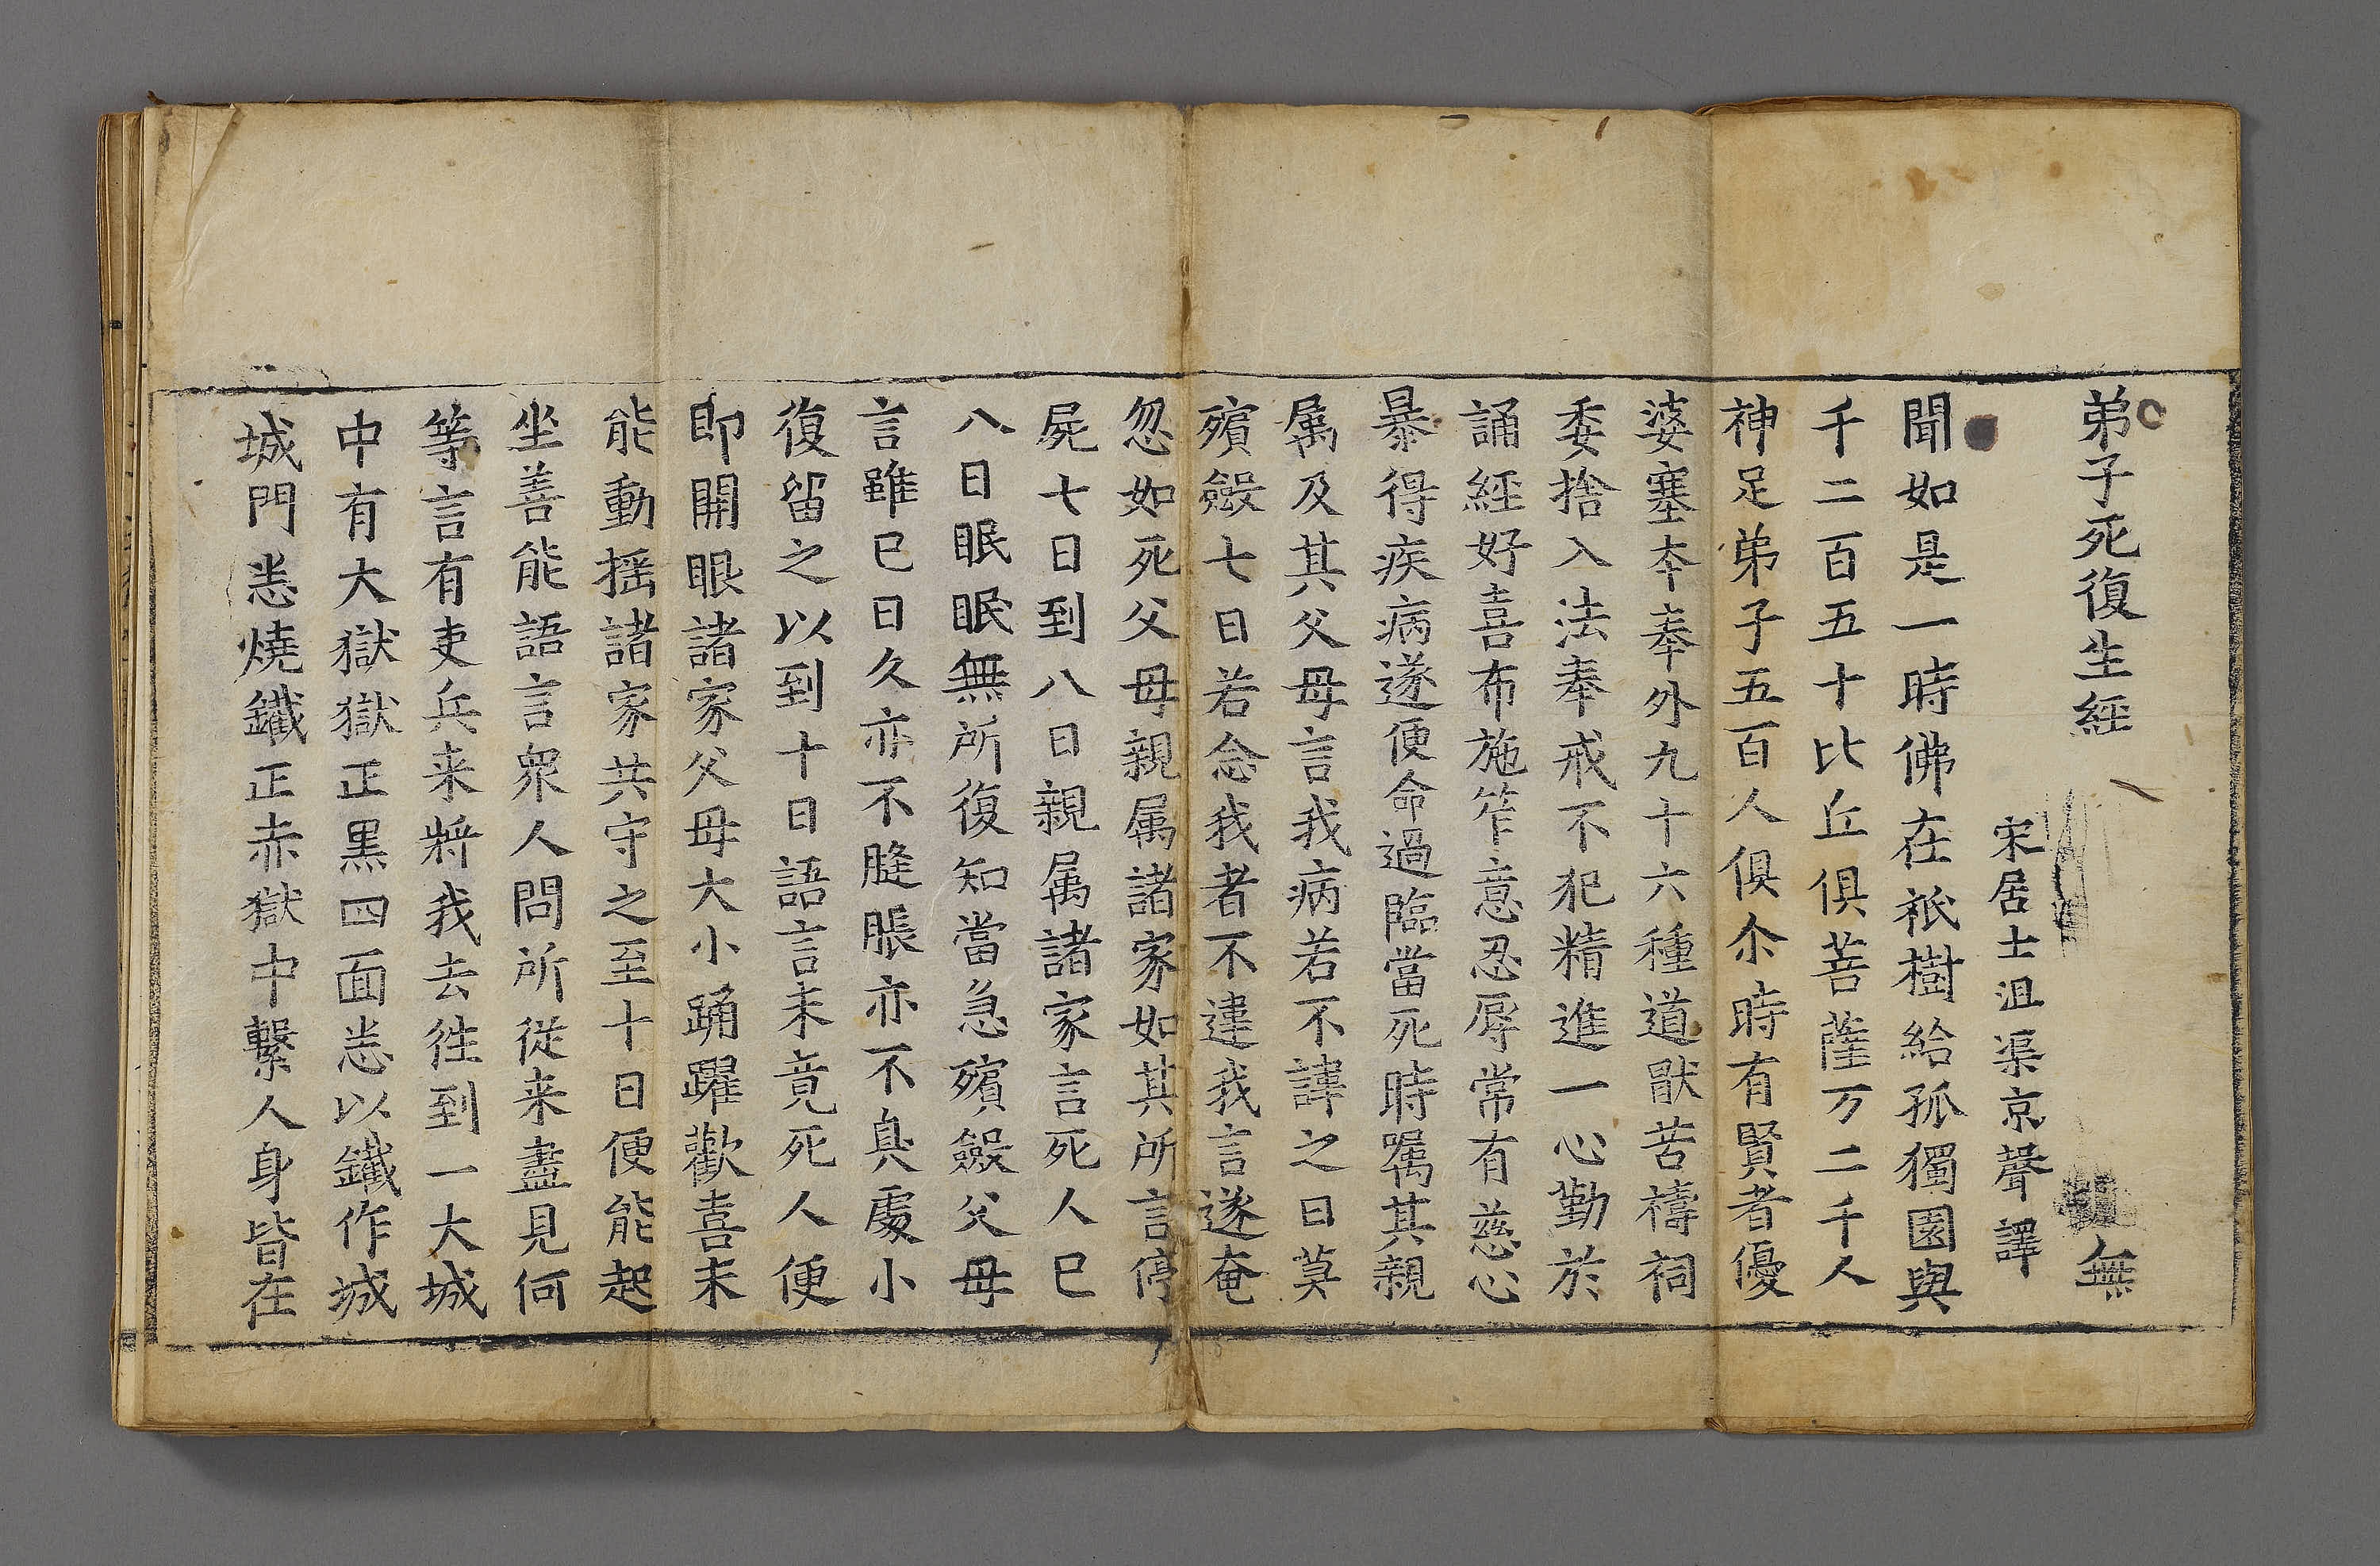 弟子死復生經 無
宋居士沮渠京聲譯
聞如是一時佛在祇樹給孤獨園與
千二百五十比丘俱菩薩万二千人
神足弟子五百人俱尒時有賢者優
婆塞本奉外九十六種道猒苦禱祠
委捨入法奉戒不犯精進一心勤於
誦經好喜布施笮意忍辱常有慈心
暴得疾病遂便命過臨當死時嘱其親
属及其父母言我病若不諱之日莫
殯斂七日若念我者不違我言遂奄
忽如死父母親属諸家如其所言停
屍七日到八日親属諸家言死人已
八日眠眠無所復知當急殯斂父母
言雖已日久亦不膖脹亦不臭處小
復留之以到十日語言未竟死人便
即開眼諸家父母大小踊躍歡喜未
能動揺諸家共守之至十日便能起
坐善能語言衆人問所從来盡見何
等言有吏兵来將我去徃到一大城
中有大獄獄正黒四面恙以鐵作城
城門恙燒鐵正赤獄中繫人身皆在